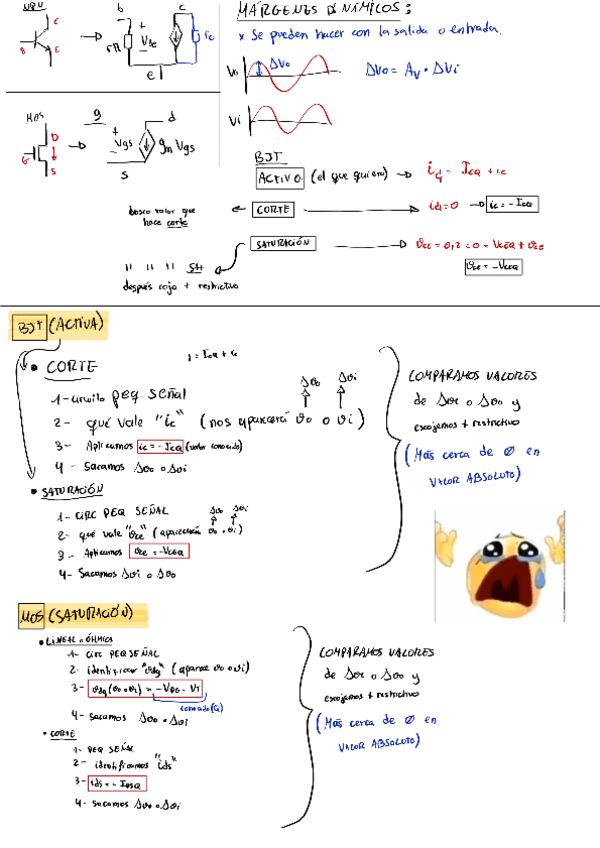 NPN
B
C
E
b
c
rπ
+
Vbe
-
ro
e
MÁRGENES DINÁMICOS:
* Se pueden hacer con la salida o entrada.
Vo
ΔVo
ΔVo = Av · ΔVi
Vi
MOS
G
D
S
g
d
+
Vgs
-
gm Vgs
s
BJT
ACTIVO (el que quiero) → id = ICQ + ic
busco valor que
hace corte
← CORTE → id=0 → ic = -ICQ
SATURACIÓN → VCE = 0,2 = 0 = VCEQ + vce
vce = -VCEQ
" " " SAT
después cojo + restrictivo
BJT (ACTIVA)
• CORTE
i = ICQ + ic
1- circuito peq. señal
Δvo Δvi
2- qué vale "ic" (nos aparecerá vo o vi)
3- Aplicamos ic = -ICQ (valor conocido)
4- Sacamos Δvo o Δvi
• SATURACIÓN
1- CIRC PEQ SEÑAL
Δvo Δvi
2- qué vale "vce" (aparecerá vo o vi)
3- Aplicamos vce = -VCEQ
4- Sacamos Δvi o Δvo
COMPARAMOS VALORES
de Δvi o Δvo y
escojemos + restrictivo
(Más cerca de 0 en
VALOR ABSOLUTO)
MOS (SATURACIÓN)
• LINEAL o ÓHMICO
1- CIRC PEQ SEÑAL
2- identificar "vdg" (aparece vo o vi)
3- vdg (vo o vi) = -VDG - VT
4- Sacamos Δvo o Δvi
• CORTE
1- PEQ SEÑAL
2- identificamos "ids"
3- ids = -IDSQ
4- Sacamos Δvo o Δvi
COMPARAMOS VALORES
de Δvi o Δvo y
escojemos + restrictivo
(Más cerca de 0 en
VALOR ABSOLUTO)